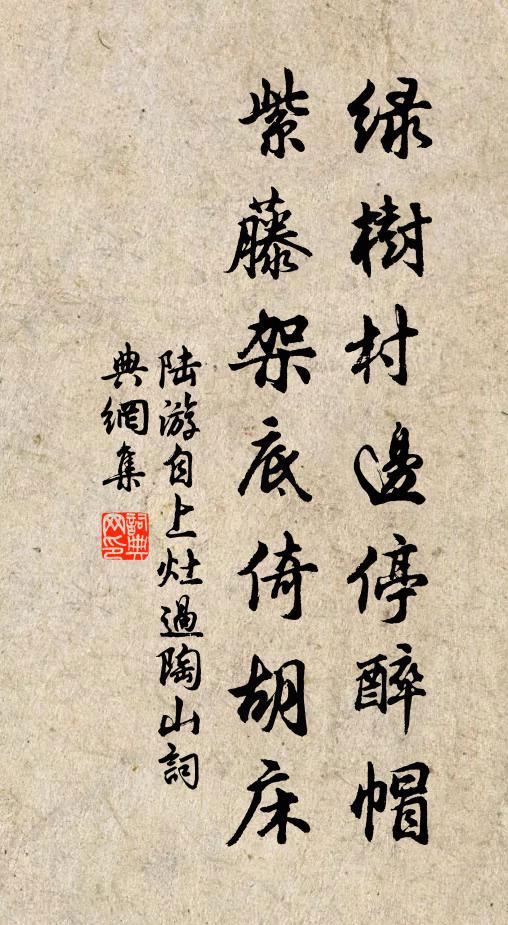 绿樹村邊停醉帽
紫藤架底倚胡床
陆游自上灶過陶山詞
典網集
詞典网印